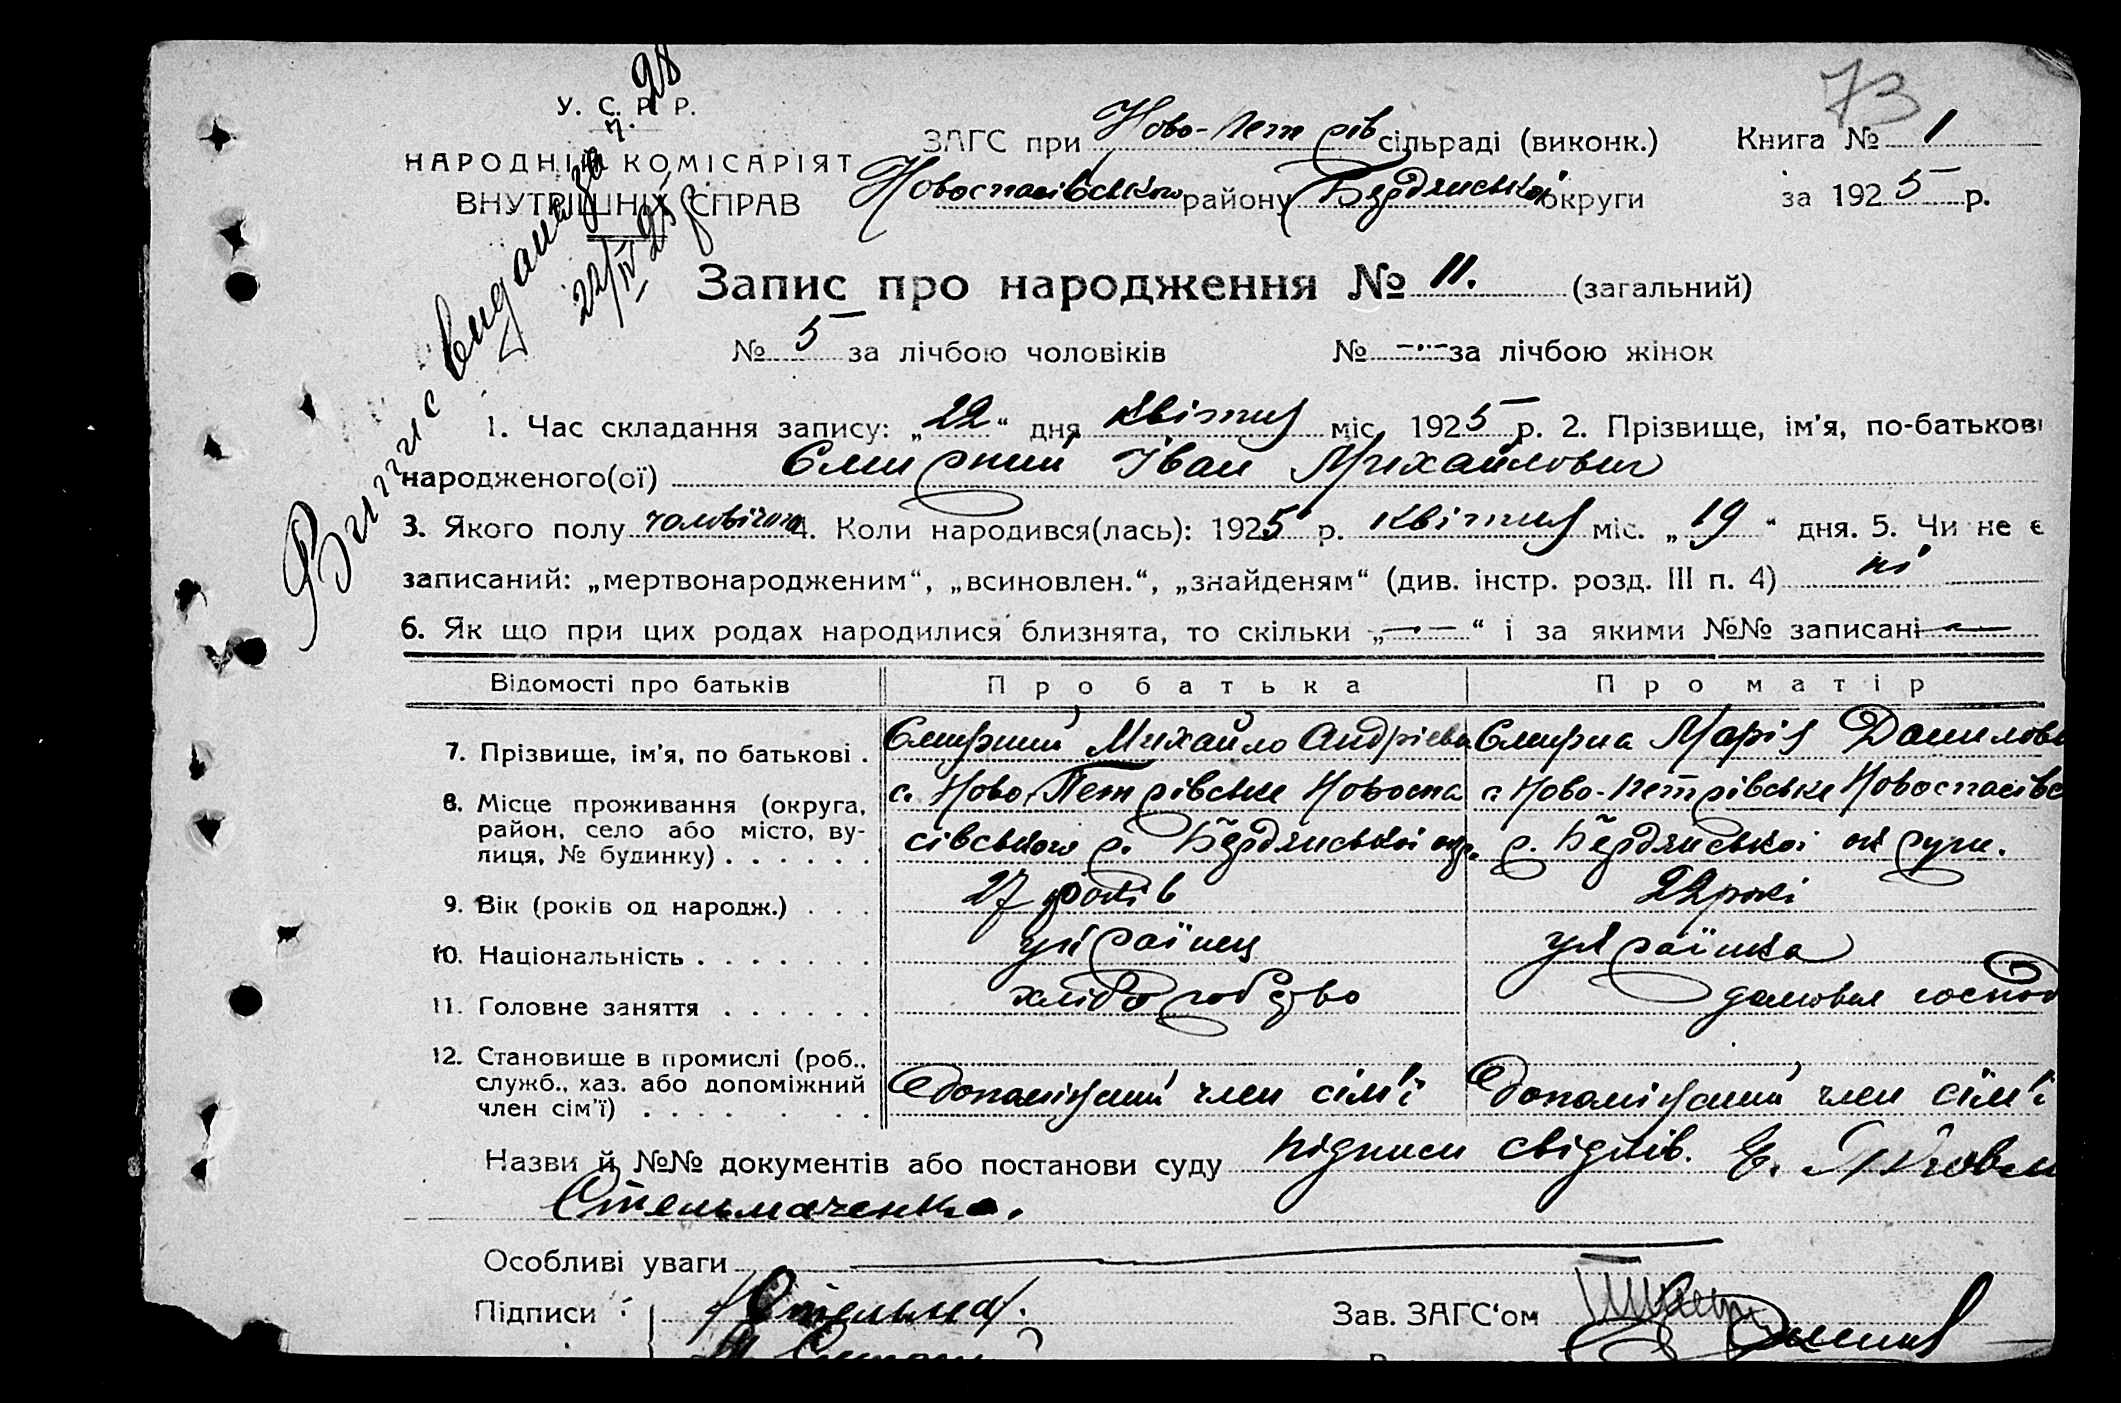 73
У. С. Р. Р.
НАРОДНІЙ КОМІСАРІЯТ
ВНУТРІШНІХ СПРАВ
Виппис видании за ч. 28
22/IV 25 р
ЗАГС при Ново-Петрів сільраді (виконк.) Книга № 1
Новоспасівського району Бердянської округи за 1925 р.
Запис про народження № 11. (загальний)
№ 5 за лічбою чоловіків № -··- за лічбою жінок
1. Час складання запису: „22“ дня квітня міс. 1925 р. 2. Прізвище, ім'я, по-батькові
народженого(ої) Смирний Іван Михайлович
3. Якого полу чоловічого 4. Коли народився(лась): 1925 р. квітня міс. „19“ дня. 5. Чи не є
записаний: „мертвонародженим“, „всиновлен.“, „знайденям“ (див. інстр. розд. III п. 4) ні
6. Як що при цих родах народилися близнята, то скільки „—·—“ і за якими №№ записані —
Відомості про батьків Про батька Про матір
7. Прізвище, ім'я, по батькові . Смирний Михайло Андрієв Смирна Марія Данилов
8. Місце проживання (округа, район, село або місто, вулиця, № будинку) . . . . . . с. Ново-Петрівське Новоспасівського р. Бердянської окр. с. Ново-Петрівське Новоспасівс р. Бердянської округи.
9. Вік (років од народж.) . . . 27 років 22 рокі
10. Національність . . . . . . . українец українка
11. Головне заняття . . . . . . хліборобство домовая господ
12. Становище в промислі (роб., служб., хаз. або допоміжний член сім'ї) . . . . . . допоміжний член сім'ї допоміжний член сім'ї
Назви й №№ документів або постанови суду підписи свідків. Е.
Стельмаченко.
Особливі уваги
Підписи Стельмах. Зав. ЗАГС'ом